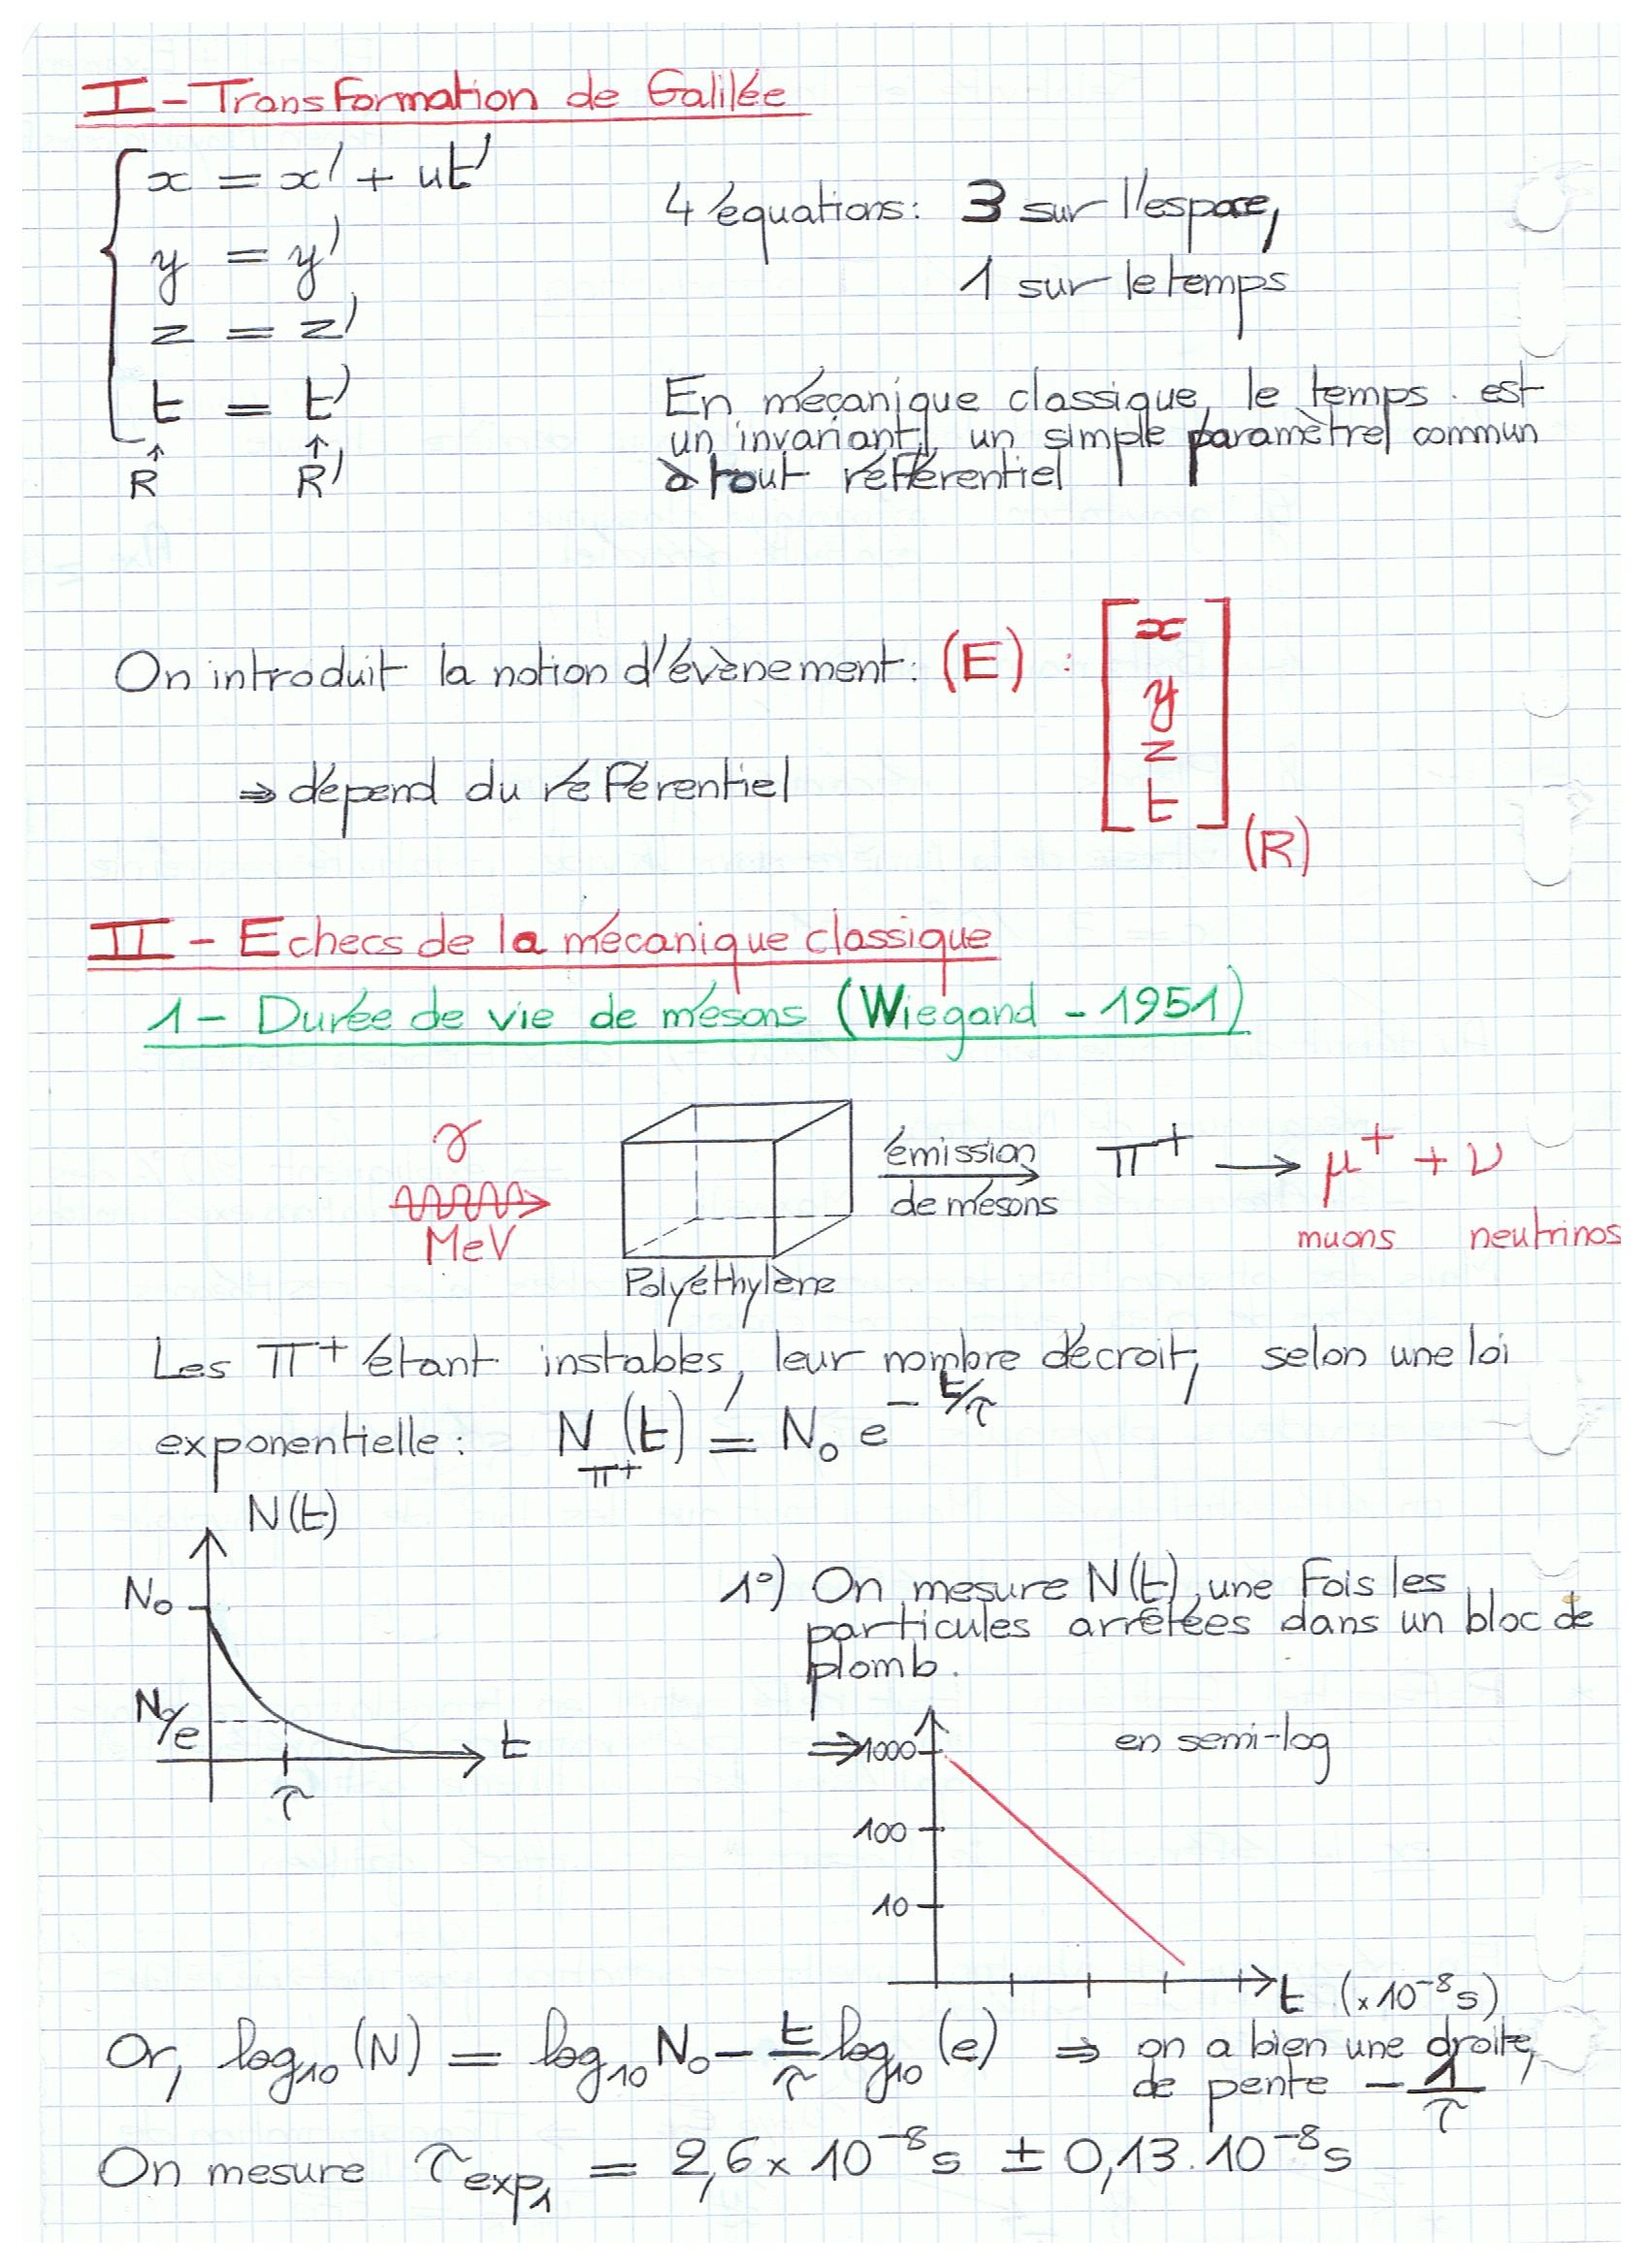 I - Transformation de Galilée
x = x' + ut'
y = y'
z = z'
t = t'
R R'
4 équations: 3 sur l'espace,
1 sur le temps
En mécanique classique, le temps est
un invariant, un simple paramètre commun
à tout référentiel
On introduit la notion d'évènement: (E) : [x y z t] (R)
⇒ dépend du référentiel
II - Echecs de la mécanique classique
1 - Durée de vie de mésons (Wiegand - 1951)
γ
MeV
Polyéthylène
émission
de mésons
π⁺ → μ⁺ + ν
muons neutrinos
Les π⁺ étant instables, leur nombre décroit, selon une loi
exponentielle: N_π⁺(t) = N₀ e^(-t/τ)
N(t)
N₀
N₀/e
t
τ
1°) On mesure N(t), une fois les
particules arrêtées dans un bloc de
plomb.
⇒ 1000
en semi-log
100
10
t (×10⁻⁸s)
Or, log₁₀(N) = log₁₀N₀ - t/τ log₁₀(e) ⇒ on a bien une droite,
de pente - 1/τ
On mesure τ_exp₁ = 2,6 × 10⁻⁸s ± 0,13.10⁻⁸s